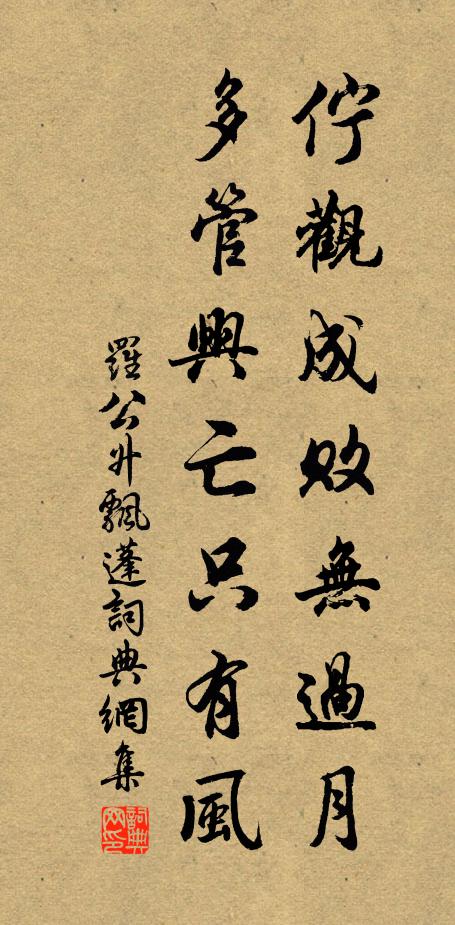 佇觀成敗無過月
多管興亡只有風
羅公升飄蓬詞典網集
詞典網印